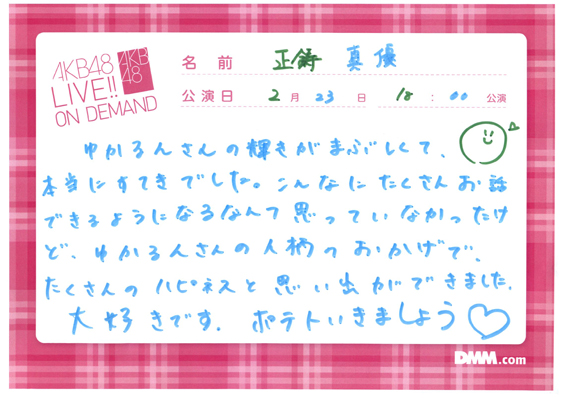 AKB48
LIVE!!
ON DEMAND
AKB
48
名前 正鋳 真優
公演日 2月23日 18:00公演
ゆかるんさんの輝きがまぶしくて、
本当にすてきでした。こんなにたくさんお話
できるようになるなんて思っていなかったけ
ど、ゆかるんさんの人柄のおかげで、
たくさんのハピネスと思い出ができました.
大好きです. ポテトいきましょう♡
DMM.com